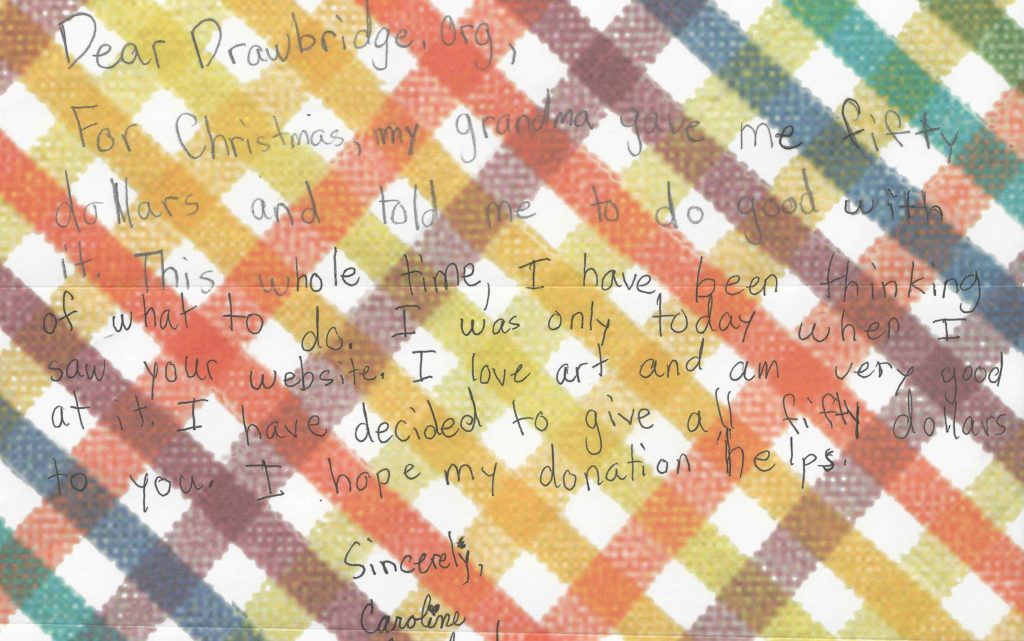 Dear Drawbridge.org,
For Christmas, my grandma gave me fifty
dollars and told me to do good with
it. This whole time, I have been thinking
of what to do. I was only today when I
saw your website. I love art and am very good
at it. I have decided to give all fifty dollars
to you. I hope my donation helps.
Sincerely,
Caroline